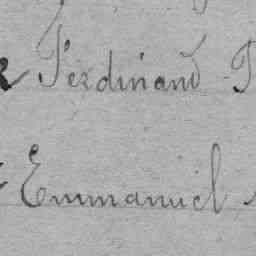 Ferdinand
Emmanuel